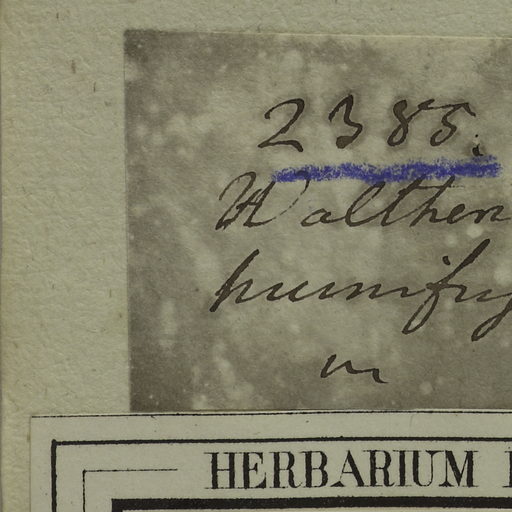 2385.
Walther
humifu
m
HERBARIUM